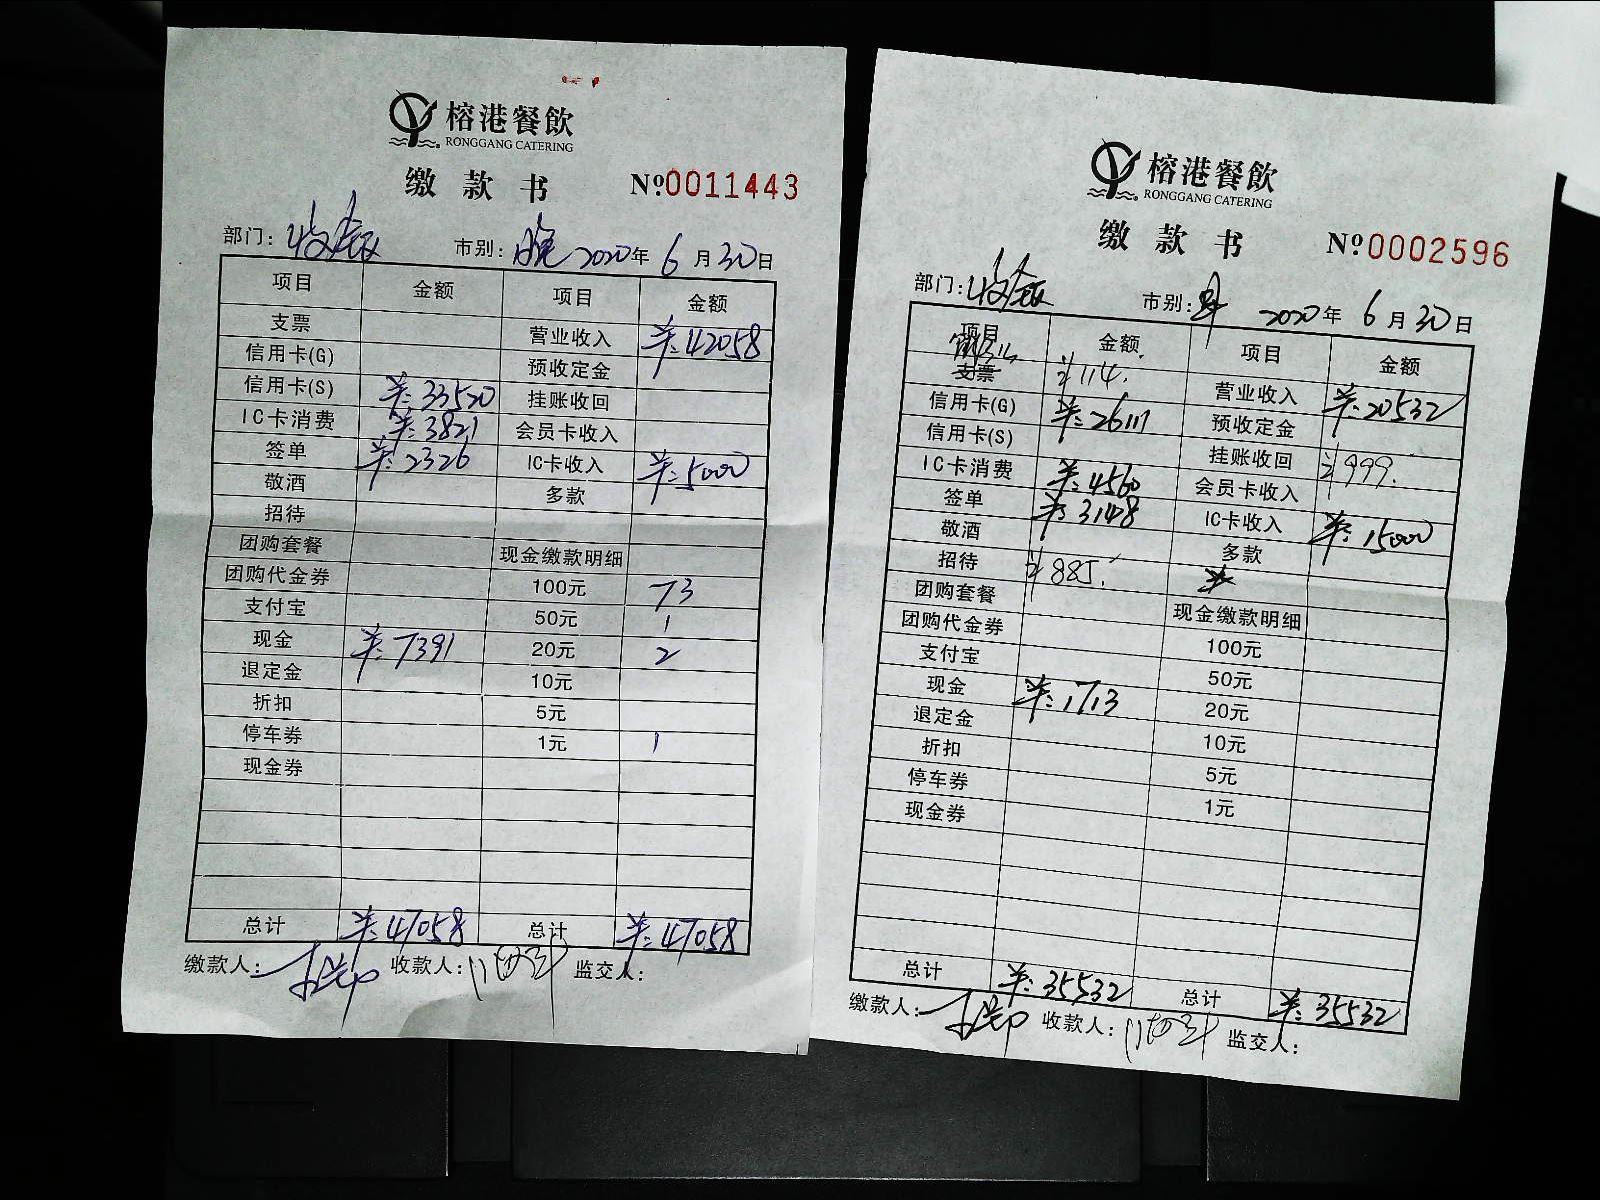 榕港餐飲
RONGGANG CATERING
缴款书 №0011443
部门: 收银 市别: 晚 2020年 6月30日
项目 金额 项目 金额
支票 营业收入 ¥:42058
信用卡(G) 预收定金
信用卡(S) ¥:33520 挂账收回
IC卡消费 ¥:3821 会员卡收入
签单 ¥:2326 IC卡收入 ¥:5000
敬酒 多款
招待
团购套餐 现金缴款明细
团购代金券 100元 73
支付宝 50元 1
现金 ¥:7391 20元 2
退定金 10元
折扣 5元
停车券 1元 1
现金券
总计 ¥:47058 总计 ¥:47058
缴款人: 收款人: 监交人:
榕港餐飲
RONGGANG CATERING
缴款书 №0002596
部门: 收银 市别: 2020年 6月30日
项目 金额 项目 金额
支票 ¥114. 营业收入 ¥:20532
信用卡(G) ¥:26111 预收定金
信用卡(S) 挂账收回 ¥999.
IC卡消费 ¥:4560 会员卡收入
签单 ¥:3148 IC卡收入 ¥:15000
敬酒 多款
招待 ¥885.
团购套餐 现金缴款明细
团购代金券 100元
支付宝 50元
现金 ¥:1713 20元
退定金 10元
折扣 5元
停车券 1元
现金券
总计 ¥:35532 总计 ¥:35532
缴款人: 收款人: 监交人: